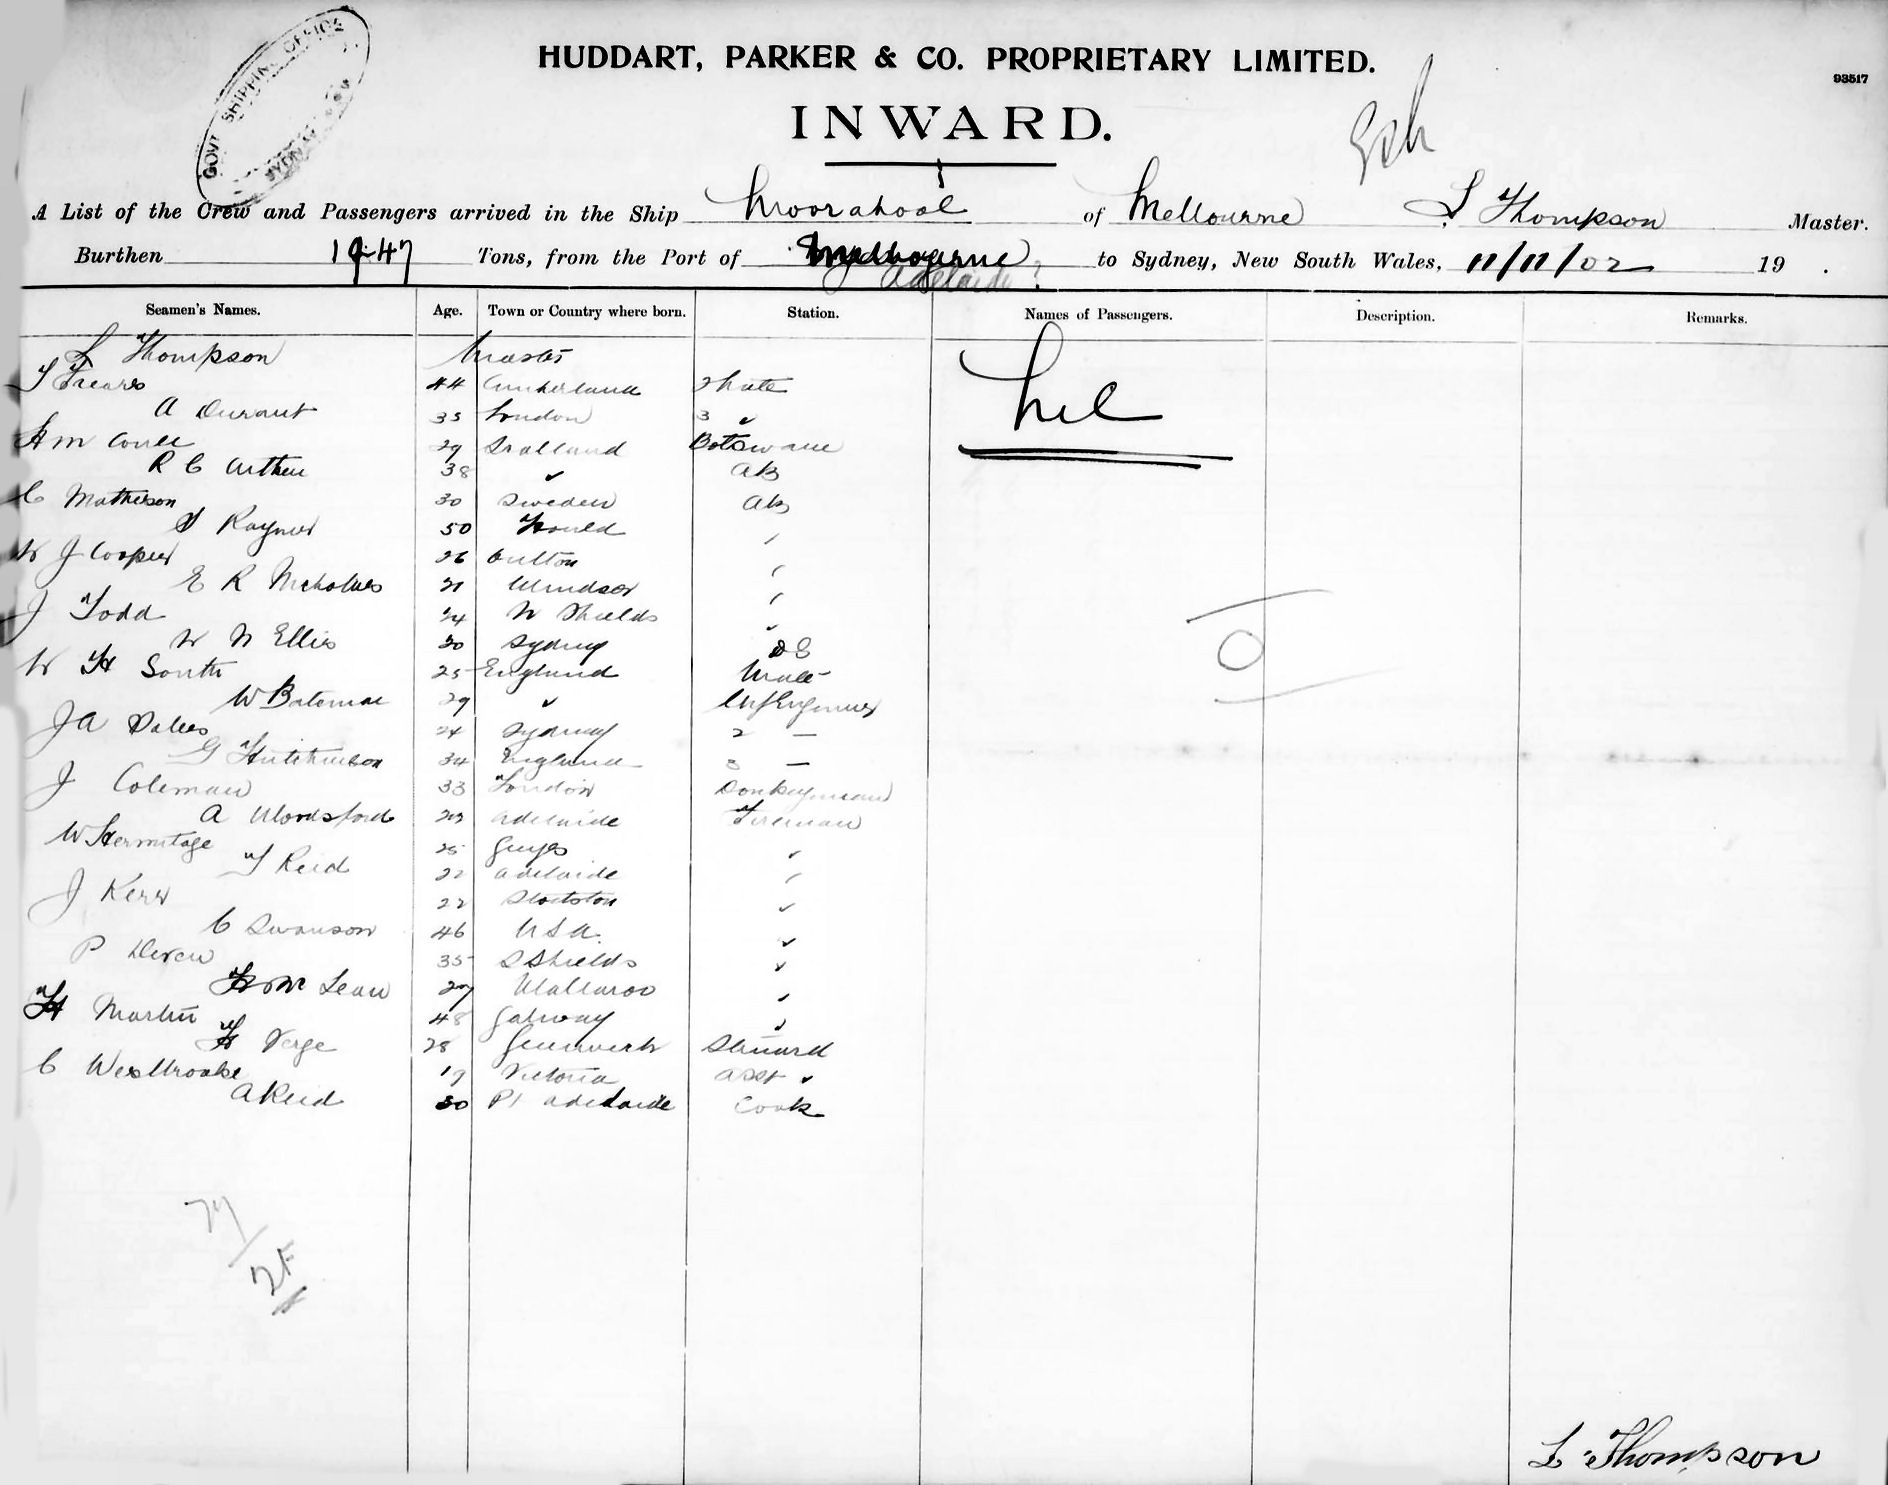 GOVT SHIPPING OFFICE
SYDNEY
HUDDART, PARKER & CO. PROPRIETARY LIMITED.
93517
INWARD.
A List of the Crew and Passengers arrived in the Ship Moorabool of Melbourne L Thompson Master.
Burthen Tons, from the Port of Melbourne to Sydney, New South Wales, 11/11/02 19 .
Adelaide ?
Seamen's Names. Age. Town or Country where born. Station. Names of Passengers. Description. Remarks.
L Thompson Master
T Frears 44 Cumberland 2 Mate Nil
A Durant 35 London 3 "
29 Scotland Botswane
R C 38 " AB
C Matheson 30 Sweden AB
S Rayner 50
W J Cooper 26
E R Nicholas 21 Windsor
J Todd 24 N Shields
W N Ellis 20 Sydney OS
W H South 25 England
W Bateman 29 " Chf Engineer
J A 24 Sydney 2 —
G Hutchinson 34 England 3 —
J Coleman 33 London Donkeyman
A Woodsford Adelaide Fireman
W Hermitage 25
T Reid 22 Adelaide
J Kerr 22
C Swanson 46 USA.
P 35 S Shields
Lean 27 Wallaroo
H Martin 48 Galway
H Verge 28 Greenwich Steward
C Westbrooke 19 Victoria Asst "
A Reid 30 Pt Adelaide Cook
L Thompson